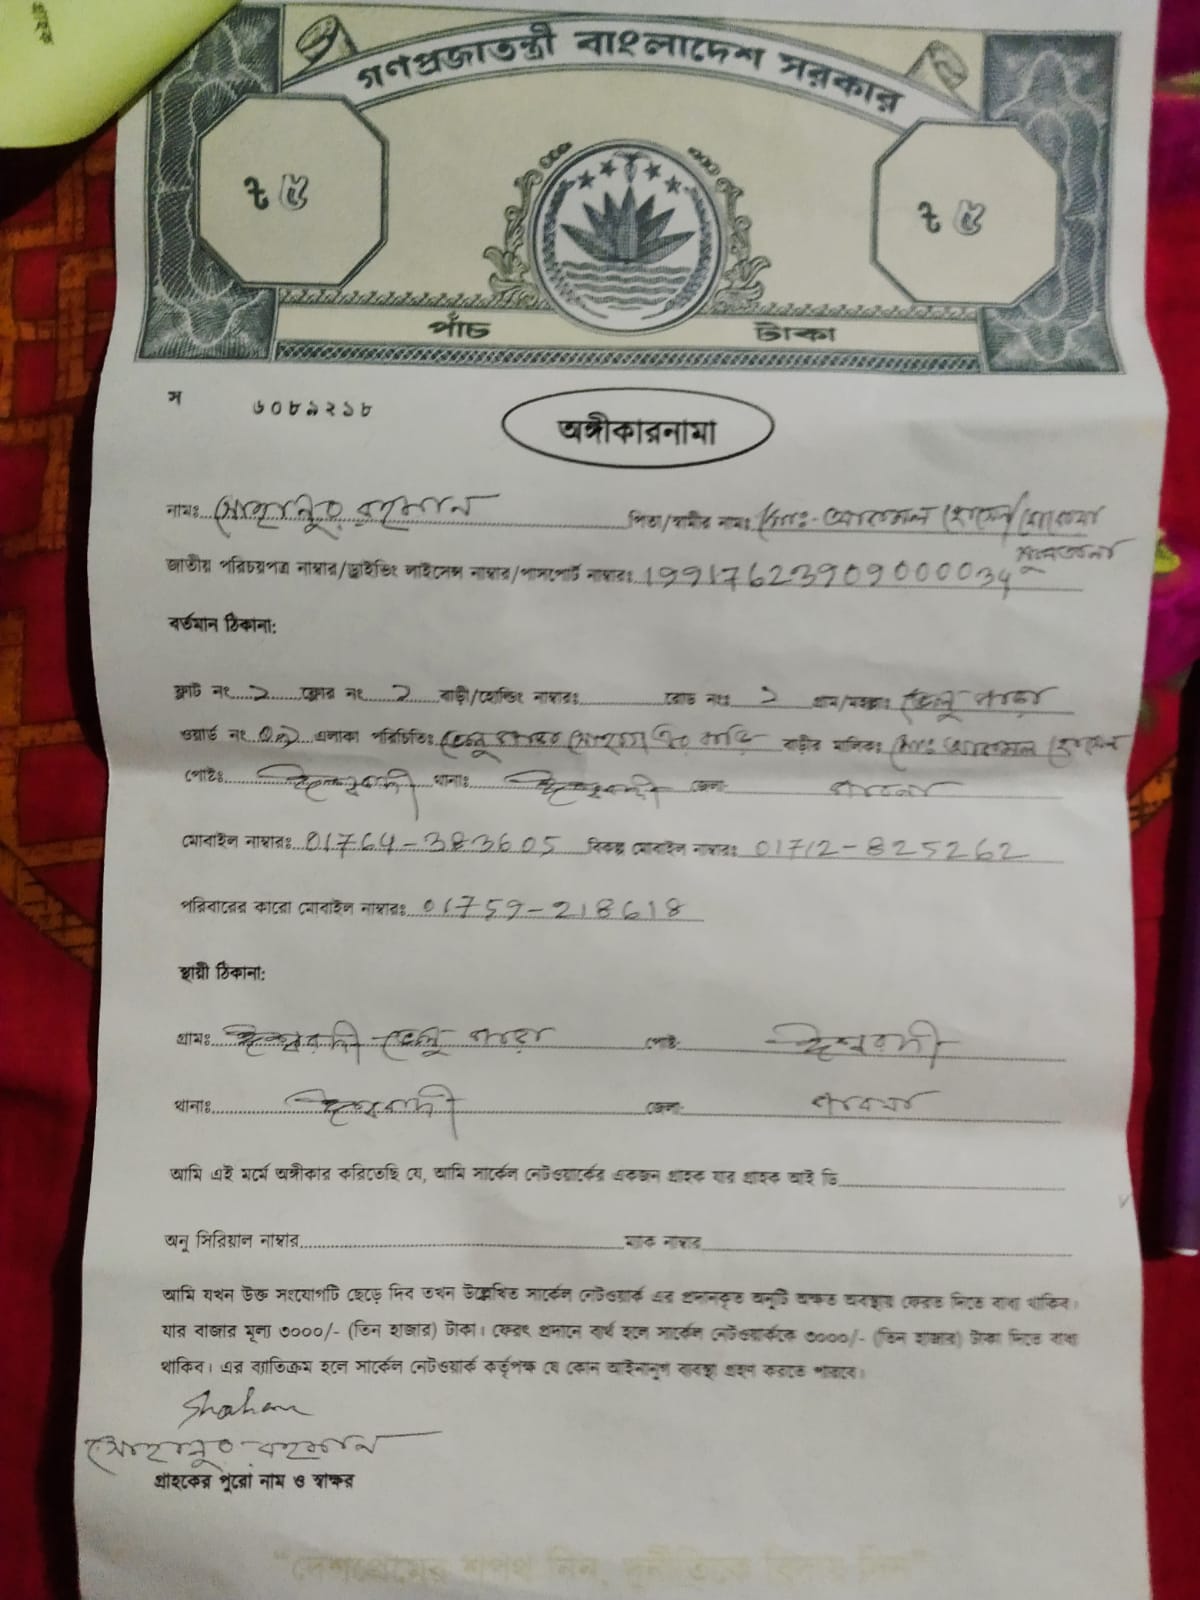 গণপ্রজাতন্ত্রী বাংলাদেশ সরকার
৳ ৫ ৳ ৫
পাঁচ টাকা
স ৬০৮৯২১৮
অঙ্গীকারনামা
নামঃ সোহানুর রহমান পিতা/স্বামীর নামঃ মোঃ- আকমল হোসেন/
জাতীয় পরিচয়পত্র নাম্বার/ড্রাইভিং লাইসেন্স নাম্বার/পাসপোর্ট নাম্বারঃ 19917623909000034
বর্তমান ঠিকানা:
ফ্লাট নং ১ ফ্লোর নং ১ বাড়ী/হোল্ডিং নাম্বারঃ রোড নংঃ ১ গ্রাম/মহল্লাঃ ভেলু পাড়া
ওয়ার্ড নং এলাকা পরিচিতিঃ ভেলু পাড়া এর বাড়ি বাড়ীর মালিকঃ মোঃ আকমল হোসেন
পোষ্টঃ ঈশ্বরদী থানাঃ ঈশ্বরদী জেলা- পাবনা
মোবাইল নাম্বারঃ 01764-383605 বিকল্প মোবাইল নাম্বারঃ 01712-825262
পরিবারের কারো মোবাইল নাম্বারঃ 01759-218618
স্থায়ী ঠিকানা:
গ্রামঃ ঈশ্বরদী ভেলু পাড়া পোষ্ট- ঈশ্বরদী
থানাঃ ঈশ্বরদী জেলা- পাবনা
আমি এই মর্মে অঙ্গীকার করিতেছি যে, আমি সার্কেল নেটওয়ার্কের একজন গ্রাহক যার গ্রাহক আই ডি
অনু সিরিয়াল নাম্বার ম্যাক নাম্বার
আমি যখন উক্ত সংযোগটি ছেড়ে দিব তখন উল্লেখিত সার্কেল নেটওয়ার্ক এর প্রদানকৃত অনুটি অক্ষত অবস্থায় ফেরত দিতে বাধ্য থাকিব।
যার বাজার মূল্য ৩০০০/- (তিন হাজার) টাকা। ফেরৎ প্রদানে ব্যর্থ হলে সার্কেল নেটওয়ার্ককে ৩০০০/- (তিন হাজার) টাকা দিতে বাধ্য
থাকিব। এর ব্যতিক্রম হলে সার্কেল নেটওয়ার্ক কর্তৃপক্ষ যে কোন আইনানুগ ব্যবস্থা গ্রহণ করতে পারবে।
সোহানুর রহমান
গ্রাহকের পুরো নাম ও স্বাক্ষর
"দেশপ্রেমের শপথ নিন, দুর্নীতিকে বিদায় দিন"